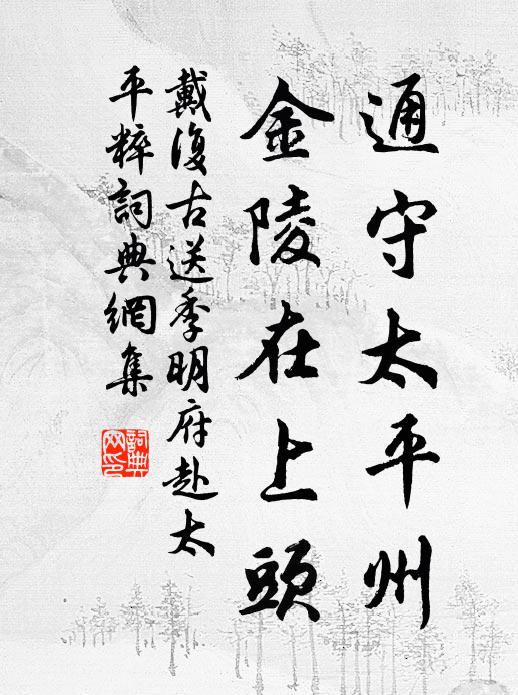 通守太平州
金陵在上頭
戴復古送季明府赴太
平粹詞典網集
詞典
网印